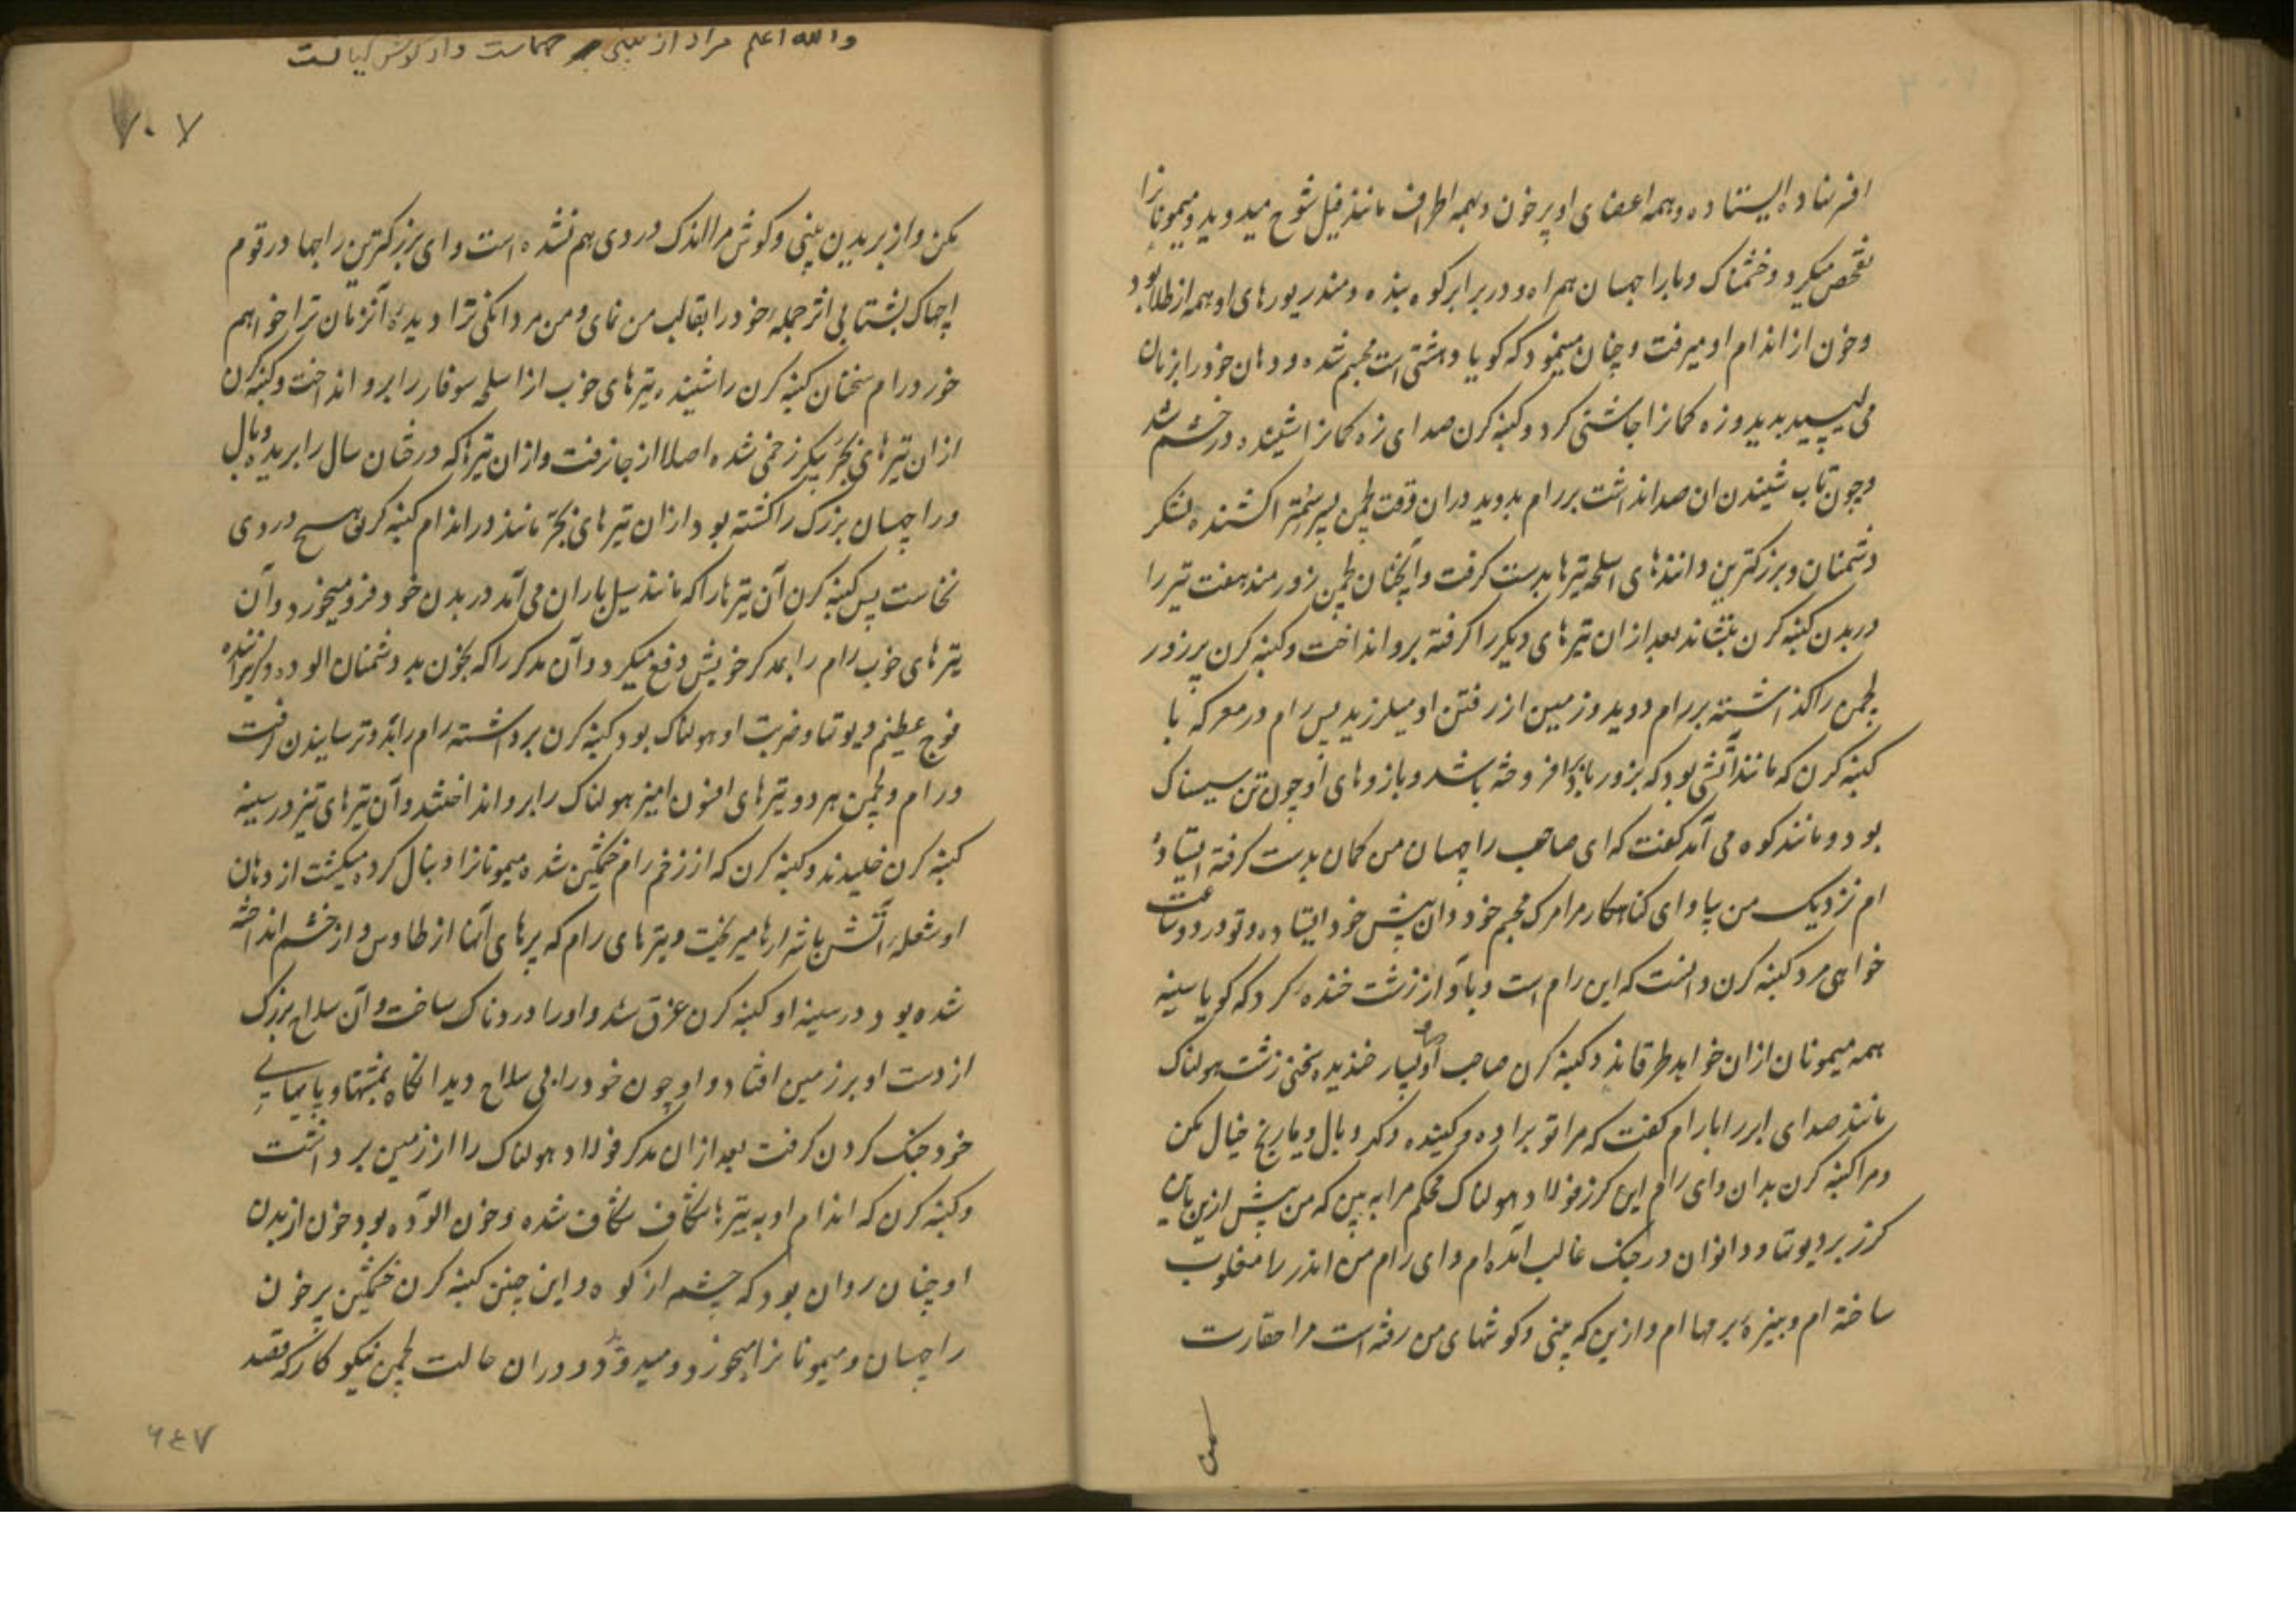 افر نهاده ایستاده و همه اعضای او پر خون و بهمه اطراف مانند فیل شوخ میدوید و میمونانرا
تفحص میکرد و خشمناک و با راچهسان همراه و در برابر کوه بنده و مندر بورهای او همه از طلا بود
و خون از اندام او میرفت و چنان مینمود که گویا دهشتی است مجسم شده و دهان خود را بزبان
می لیسید بدید و زه کمانرا چاشنی کرد و کنبه کرن صدای زه کمانرا شنیده در خشم شد
و چون تاب شنیدن آن صدا نداشت بر رام بدوید در آن وقت لچمن پسر سمترا کشنده لشکر
دشمنان و بزرگترین دانندهای اسلحه تیرها بدست گرفت و آنچنان لچمن زورمند هفت تیر را
در بدن کنبه کرن بنشاند بعد از آن تیرهای دیگر را گرفته برو انداخت و کنبه کرن پر زور
لچمن را گذاشته بر رام دوید و زمین از رفتن او میلرزید پس رام در معرکه با
کنبه کرن که مانند آتشی بود که بزور باد افروخته باشد و بازوهای او چون تن سیسناک
بود و مانند کوه می آمد گفت که ای صاحب راچهسان من کمان بدست گرفته ایستاده
ام نزدیک من بیا و ای گناهکار مرا مرگ مجسم خود دان پیش خود ایستاده و تو در دو ساعت
خواهی مرد کنبه کرن دانست که این رام است و بآواز زشت خنده کرد که گویا سینه
همه میمونان از آن خواهد طرقاند و کنبه کرن صاحب او بسیار خندیده سخنی زشت هولناک
مانند صدای ابر را با رام گفت که مرا تو براده و کبنده و کهر و بال و ماریچ خیال مکن
و مرا کنبه کرن بدان و ای رام این گرز فولاد هولناک محکم مرا به بین که من پیش ازین باین
گرز بر دیوتا و دانوان در جنگ غالب آمده ام و ای رام من اندر را مغلوب
ساخته ام و نبیره برمها ام و ازین که بینی و گوشهای من رفته است مرا حقارت
مکن
والله اعلم مراد از بینی حماست و از گوش کیاست
۷۰۷
مکن و از بریدن بینی و گوش مرا اندک دردی هم نشده است و ای بزرگترین راجها در قوم
اچهاک بشتابی اثر حمله خود را بقالب من نمای و من مردانگی ترا دیده آنزمان ترا خواهم
خورد رام سخنان کنبه کرن را شنیده تیرهای خوب از اسلحه سوفار را برو انداخت و کنبه کرن
از آن تیرهای بجر پیکر زخمی شده اصلا از جا نرفت و از آن تیرها که درختان سال را بریده و بال
و راچهسان بزرگ را کشته بود از آن تیرهای بجر مانند در اندام کنبه کرن هیچ دردی
نخاست پس کنبه کرن آن تیرها را که مانند سیل باران می آمد در بدن خود فرو میخورد و آن
تیرهای خوب رام را بمدگر خویش دفع میکرد و آن مدگر را که بخون بد دشمنان آلوده و گریزاننده
فوج عظیم دیوتها و ضربت او هولناک بود کنبه کرن برداشته رام را بدو ترسانیدن گرفت
و رام و لچمن هر دو تیرهای افسون آمیز هولناک را برو انداختند و آن تیرهای تیز در سینه
کنبه کرن خلیدند و کنبه کرن که از زخم رام خشمگین شده میمونانرا دنبال کرده میکشت از دهان
او شعله آتش با شرارها میریخت و تیرهای رام که پرهای آنها از طاوس و از خشم انداخته
شده بود در سینه او کنبه کرن غرق شد و او را دردناک ساخت و آن سلاح بزرگ
از دست او بر زمین افتاد و او چون خود را بی سلاح دید آنگاه بمشتها و پایهای
خود جنگ کردن گرفت بعد از آن مدگر فولاد هولناک را از زمین برداشت
و کنبه کرن که اندام او به تیرها شکاف شکاف شده و خون آلوده بود خون از بدن
او چنان روان بود که چشمه از کوه و این چنین کنبه کرن خشمگین پر خون
راچهسان و میمونانرا میخورد و میدوید و در آن حالت لچمن نیکو کار که قصد
۶۴۷